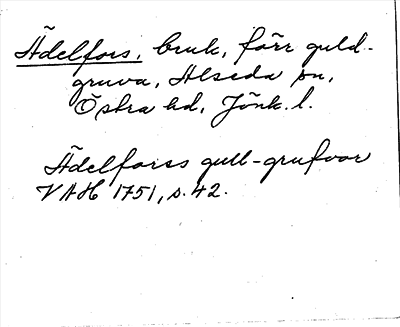 Ädelfors, bruk, förr guld-
gruva, Alseda sn,
Östra hd, Jönk. l.
Ädelforss gull-grufvor
VAH 1751, s. 42.